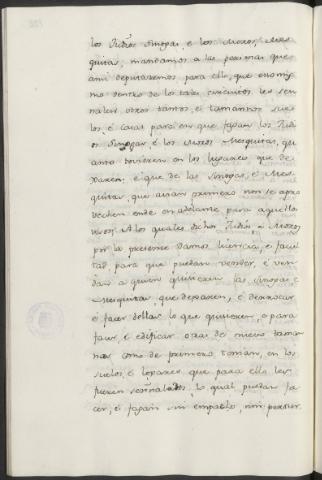 los Judíos Sinogas, e los Moros, Mez-
quitas, mandamos a las personas que
ansi deputaremos para ello, que en omis-
mo dentro de los tales circuitos les se-
ñalen otros tantos, é tamannos sue-
los, é casas para en que fagan los Judi-
os Sinogas, é los Moros Mezquitas, qu-
anto tovieren en los logares que de-
xaren, é que de las Sinogas, é Mez-
quitas, que avian primero non se apro-
vechen ende en adelante para aquellos
usos: A los quales dichos Judios é Moros
por la presente Damos licencia, é facul-
tad, para que puedan vender, é ven-
dan a quien quisieren las Sinogas é
Mezquitas, que dexaren, é derrocar
é facer dellas lo que quisieren, é para
facer, é edificar otras de nuevo taman-
nas como de primero tenian, en los
suelos, é logares que para ello les
fueren señalados, lo qual puedan fa-
cer, é fagan sin empacho, nin pertur-